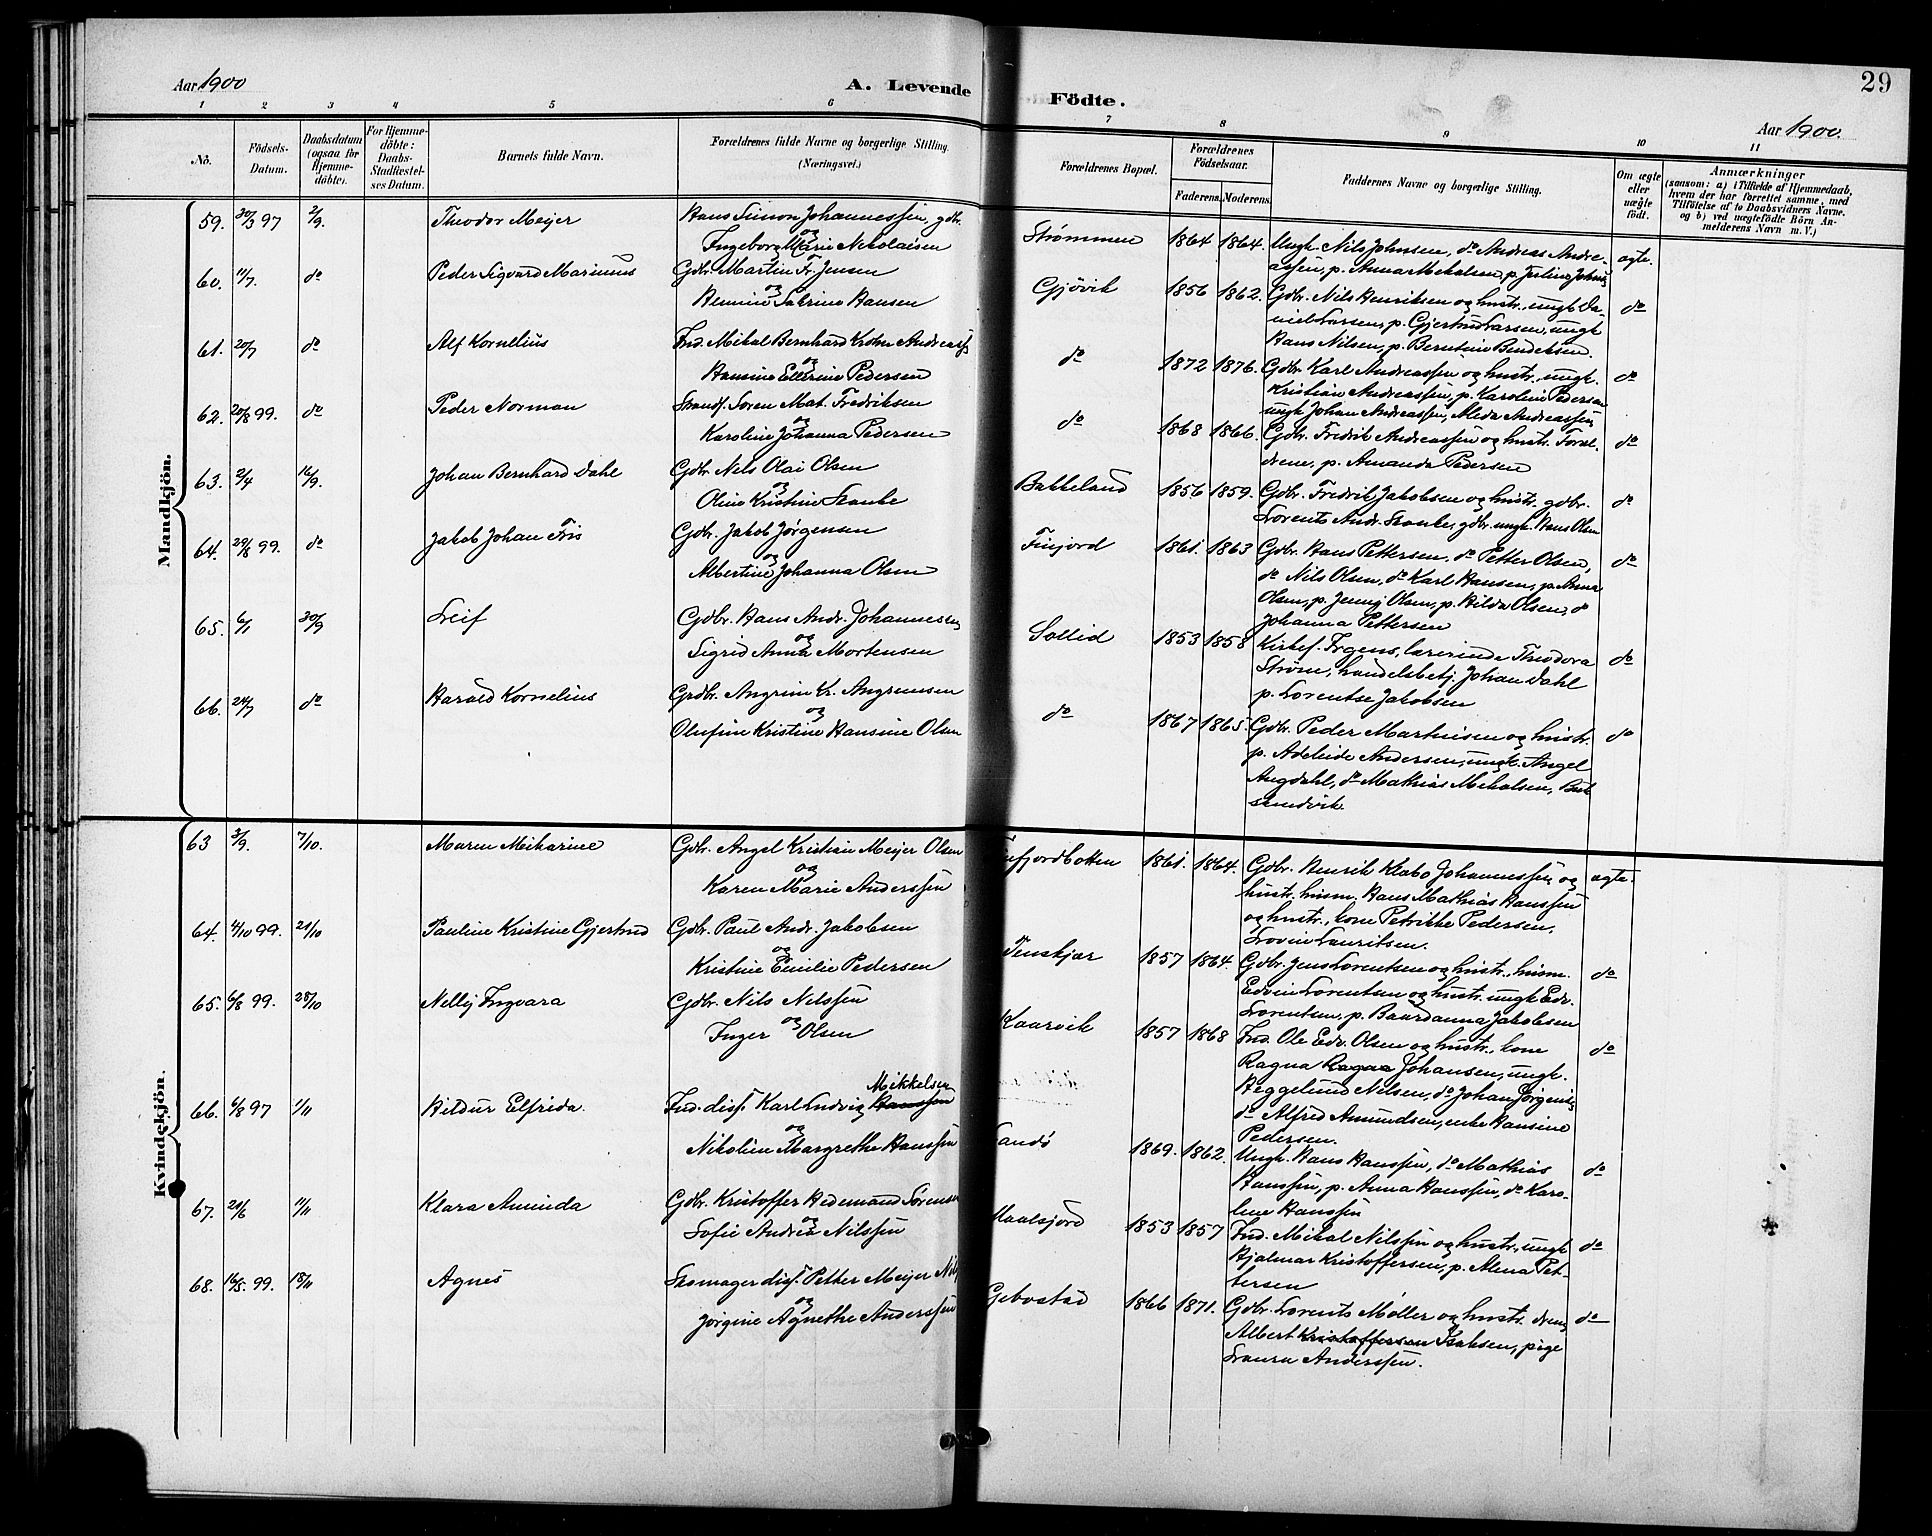 Aar 1900
A. Levende
Födte.
29
Aar 1900.
1 2 3 4 5 6 7 8 9 10 11
No.
Födsels-
Datum.
Daabsdatum
(ogsaa for
Hjemme-
döbte).
For Hjemme-
döbte:
Daabs-
Stadfæstel-
ses Datum.
Barnets fulde Navn.
Forældrenes fulde Navne og borgerlige Stilling.
(Næringsvei.)
Forældrenes Bopæl.
Forældrenes
Födselsaar.
Faderens. Moderens.
Faddernes Navne og borgerlige Stilling.
Om ægte
eller
uægte
födt.
Anmærkninger
(saasom: a) i Tilfælde af Hjemmedaab,
hvem der har forrettet samme, med
Tilföielse af to Daabsvidners Navne.
og b) ved uægtefödte Börn An-
melderens Navn m. V.)
Mandkjön.
59. 30/3 97 2/9. Theodor Meijer Hans Simon Johannessen, gdbr.
og
Ingeborg Marie Nikolaisen
Strømmen 1864 1864. Ungk. Nils Johnsen, do Andreas Andre-
assen, p. Anna Mikalsen, p. Jerline Johns ægte.
60. 11/7. do Peder Sigvard Marinius Gdbr. Martin Fr. Jensen
og
Hennine Sabrine Hansen
Gjövik 1856 1862. Gdbr. Nils Henriksen og hustr., ungk. Da-
niel Larsen, p. Gjertrud Larsen, ungk.
Hans Nilsen, p. Berntine Bendeksen. do
61. 20/7 do Alf Kornelius Ind. Mikal Bernhard Krohn Andreass
og
Hansine Ellerine Pedersen
do 1872 1876. Gdbr. Karl Andreassen og hustr., ungk.
Kristian Andreassen, p. Karoline Pedersen
ungk Johan Andreassen, Alida Andreassen do
62. 20/8 99. do Peder Norman Strands. Soren Mat. Fredriksen
og
Karoline Johanna Pedersen
do 1868 1866. Gdbr. Fredrik Andreassen og hustr. Foræl-
drene, p. Amanda Pedersen do
63. 2/4 16/9. Johan Bernhard Dahl Gdbr. Nils Olai Olsen
og
Oline Kristine Skanke
Bakkeland 1856 1859. Gdbr. Fredrik Jakobsen og hustr. gdbr.
Lorents Andr. Skanke, gdbr. ungk. Hans Olsen do
64. 29/8 99. do Jakob Johan Friis Gdbr. Jakob Jørgensen
og
Albertine Johanna Olsen
Finjord 1861. 1863 Gdbr. Hans Pettersen, do Petter Olsen,
do Nils Olsen, do Karl Hansen, p. Anna
Olsen, p. Jenny Olsen, p. Hilda Olsen, do
Johanna Pettersen do
65. 6/1 30/9 Leif Gdbr. Hans Andr. Johannesen
og
Sigrid Anna Mortensen
Sollid 1853 1858 Kirkes. Irgens, lærerinde Theodora
Strøm, handelsbetj. Johan Dahl
p. Lorentse Jakobsen do
66. 24/7 do Harald Kornelius Gdbr. Angrim Kr. Angremsen
og
Olufine Kristine Hansine Olsen
do 1867 1865. Gdbr. Peder Martinisen og hustr.
p. Adeleide Andersen, ungk. Angel
Angdahl, do Mathias Mikalsen, Buk
skindvik do
Kvindekjön.
63 3/9. 7/10. Maren Mikarine Gdbr. Angel Kristian Meijer Olsen
og
Karen Marie Anderssen
Finfjordbotten 1861. 1864. Gdbr. Henrik Klabo Johannessen og
hustr. husm. Hans Mathias Hanssen
og hustr., kone Petrikke Pedersen,
Lovin Lauritsen. ægte.
64. 4/10 99. 21/10 Pauline Kristine Gjertrud Gdbr. Paul Andr. Jakobsen
og
Kristine Emilie Pedersen
Tenskjær 1857 1864. Gdbr. Jens Lorentsen og hustr., husm.
Edvin Lorentsen og hustr. ungk Edv.
Lorentsen, p. Baardanna Jakobsen do
65. 6/8 99. 28/10 Nelly Ingvara Gdbr. Nils Nilssen
og
Inger Olsen
Kaarvik 1857 1868 Ind. Ole Edv. Olsen og hustr., kone
Ragna Ragna Johansen, ungk.
Heggelund Nilsen, do Johan Jørgensen
do Alfred Amundsen, enke Hansine
Pedersen. do
66. 6/8 97 1/11 Hildur Elfrida. Ind. diss. Karl Ludvig Hanssen Mikkelsen
og
Nikoline Margrethe Hanssen
Sandö 1869. 1862. Ungk. Hans Hanssen, do Mathias
Hanssen, p. Anna Hanssen, do Karo-
line Hanssen do
67. 20/6 11/11 Klara Aminda Gdbr. Kristoffer Hedemand Sörensen
og
Sofie Andrea Nilssen
Maalsjord 1853 1857 Ind. Mikal Nilssen og hustr., ungk
Hjalmar Kristoffersen, p. Alma Pet-
tersen do
68. 16/8. 99. 18/11 Agnes Skomager diss. Petter Meijer Nils
og
Jørgine Agnethe Anderssen
Gebostad 1866 1871. Gdbr. Lorents Møller og hustr. dreng
Albert Kristoffersen Isaksen, pige
Laura Anderssen. do